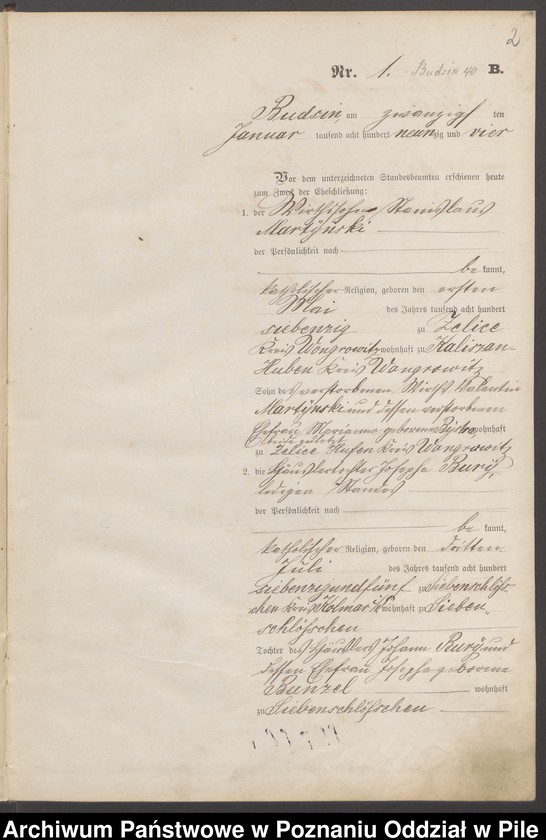 2
Nr. 1. Budsin 40 B.
Budsin, am zwanzigsten
Januar tausend acht hundert neunzig und vier
Vor dem unterzeichneten Standesbeamten erschienen heute
zum Zweck der Eheschließung:
1. der Wirthssohn Stanislaus
Martynski
der Persönlichkeit nach
be kannt,
katholischer Religion, geboren den ersten
Mai des Jahres tausend acht hundert
siebenzig zu Zelice
Kreis Wongrowitz wohnhaft zu Kaliszan-
Huben Kreis Wongrowitz
Sohn des verstorbenen Wirths Valentin
Martynski und dessen verstorbenen
Ehefrau Marianna geborene wohnhaft
beide zuletzt
zu Zelice Hufen Kreis Wongrowitz
2. die Häuslertochter Josepha Burÿ,
ledigen Standes
der Persönlichkeit nach
be kannt,
katholischer Religion, geboren den dritten
Juli des Jahres tausend acht hundert
siebenzigundfünf zu Siebenschlöß-
chen Kreis Kolmar i/P wohnhaft zu Sieben-
schlößchen
Tochter des Häuslers Johann Burÿ und
dessen Ehefrau Josepha geborene
Bunzel wohnhaft
zu Siebenschlößchen
Archiwum Państwowe w Poznaniu Oddział w Pile